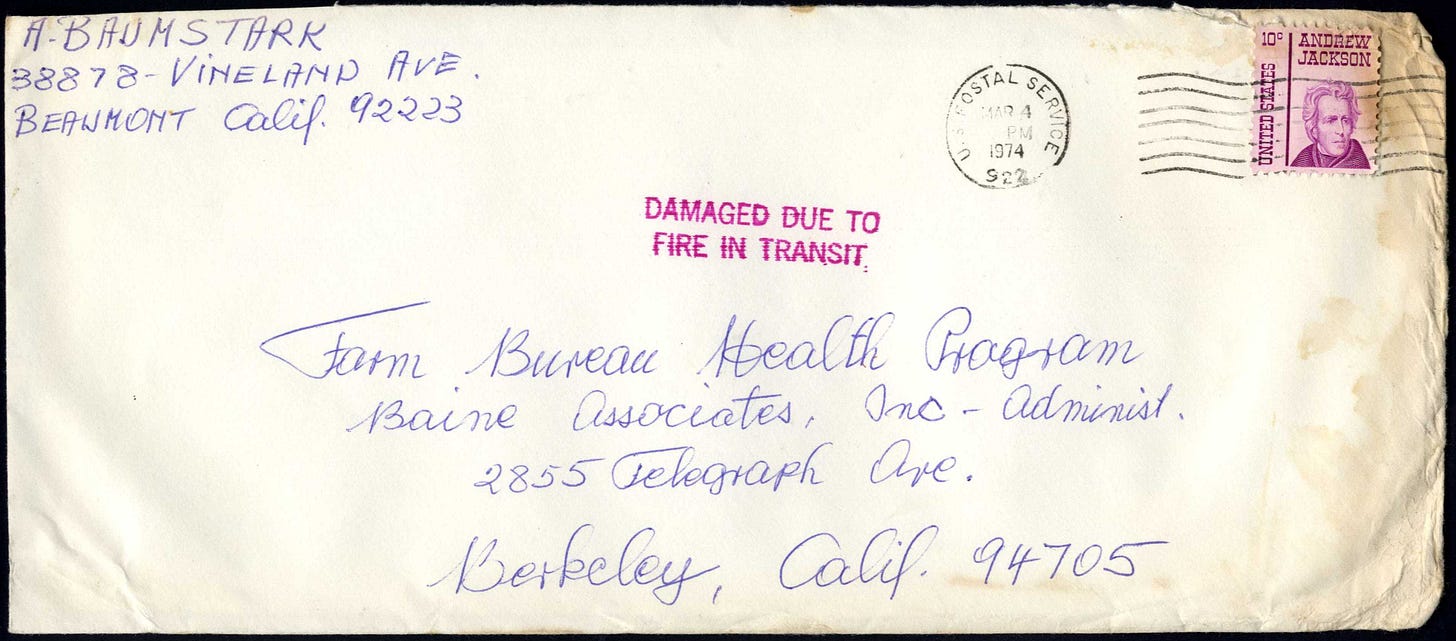 A. BAUMSTARK
38878 - VINELAND AVE.
BEAUMONT Calif. 92223
U.S. POSTAL SERVICE
MAR 4
PM
1974
922
10¢ ANDREW
JACKSON
UNITED STATES
DAMAGED DUE TO
FIRE IN TRANSIT
Farm Bureau Health Program
Baine Associates, Inc - Administ.
2855 Telegraph Ave.
Berkeley, Calif. 94705